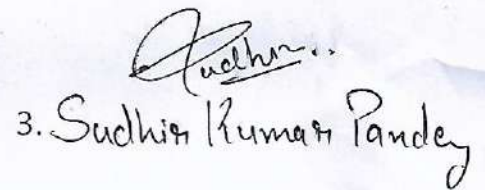 Sudhir..
3. Sudhir Kumar Pandey